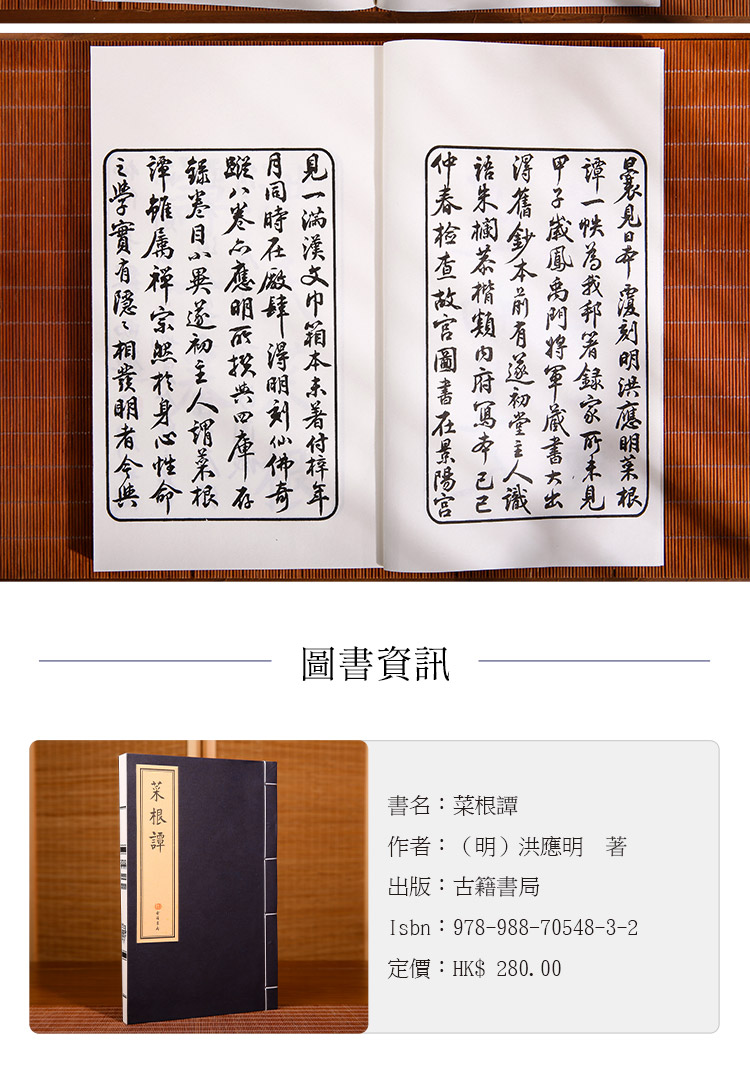 曩見日本覆刻明洪應明菜根
譚一帙為我邦著録家所未見
甲子歲鳳禹門將軍藏書大出
得舊鈔本前有遂初堂主人識
語朱欄恭楷類内府寫本己巳
仲春檢查故宮圖書在景陽宮
見一滿漢文巾箱本未著付梓年
月同時在廠肆得明刻仙佛奇
蹤八卷亦應明所撰與四庫存
録卷目小異遂初主人謂菜根
譚雖属禪宗然於身心性命
之學實有隱隱相發明者今與
圖書資訊
菜根譚
書名：菜根譚
作者：（明）洪應明　著
出版：古籍書局
Isbn：978-988-70548-3-2
定價：HK$ 280.00